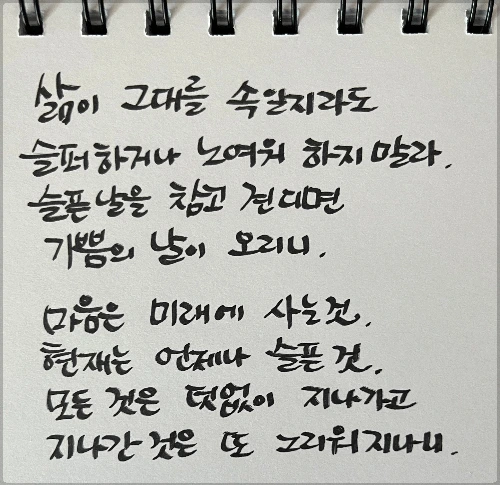 삶이 그대를 속일지라도
슬퍼하거나 노여워 하지 말라.
슬픈 날을 참고 견디면
기쁨의 날이 오리니.
마음은 미래에 사는 것.
현재는 언제나 슬픈 것.
모든 것은 덧없이 지나가고
지나간 것은 또 그리워지나니.